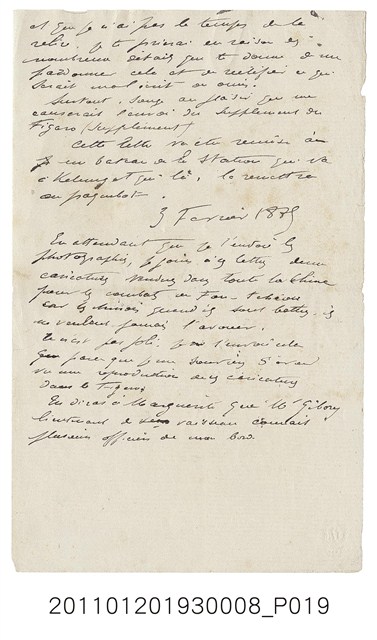 et que je n'ai pas le temps de la
relire, je te prierai en raison des
nombreux détails que je donne de me
pardonner cela et de rectifier ce qui
serait mal écrit ou omis.
Surtout, songe au plaisir que me
causerait l'envoi du Supplement du
Figaro (Supplement)
Cette lettre va être remise à
un bateau de la Station qui va
à Kelung et qui là, la remettra
au paquebot.
3 Fevrier 1885
En attendant que je t'envoie les
photographies, je joins à la lettre deux
caricatures vendues dans toute la Chine
pour les combats de Fou-tcheou
car les chinois quand ils sont battus ils
ne veulent jamais l'avouer.
Ce n'est pas joli. Je t'envoie cela
parce que je me souviens d'avoir
vu une reproduction de ces caricatures
dans le Figaro
Tu diras à Marguerite que Mr Giboury
lieutenant de vaisseau connait
plusieurs officiers de mon bord.
201101201930008_P019